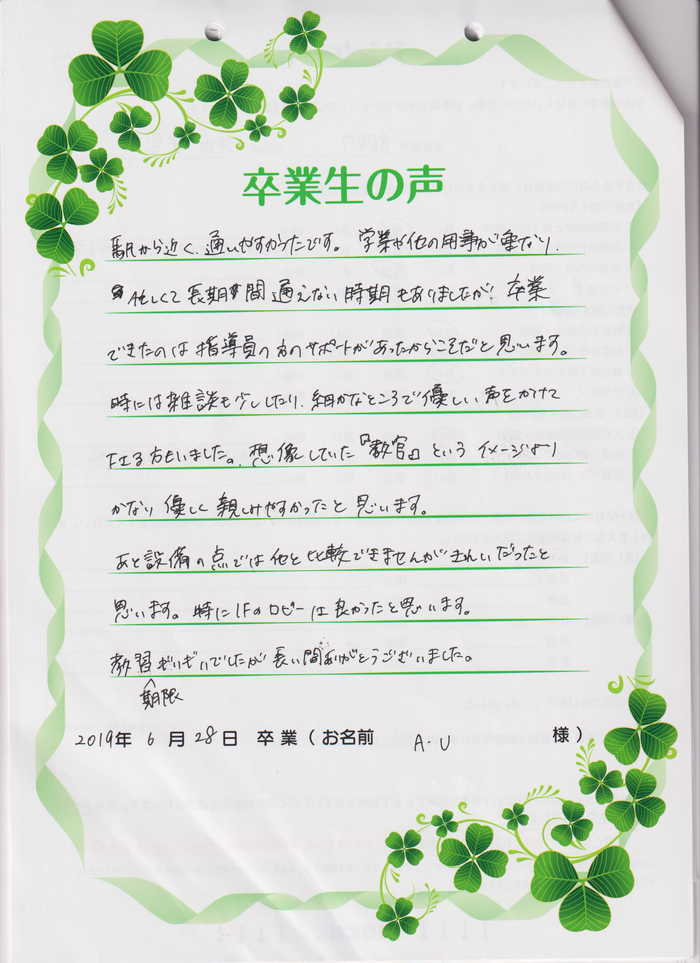 卒業生の声
駅から近く、通いやすかったです。学業や他の用事が重なり、
忙しくて長期間通えない時期もありましたが、卒業
できたのは指導員の方のサポートがあったからこそだと思います。
時には雑談も少ししたり、細かなところで優しい声をかけて
下さる方もいました。想像していた『教官』というイメージより
かなり優しく親しみやすかったと思います。
あと設備の点では他と比較できませんがきれいだったと
思います。特に1Fのロビーは良かったと思います。
教習期限ぎりぎりでしたが長い間ありがとうございました。
2019年 6月 28日 卒業(お名前 A.U 様)